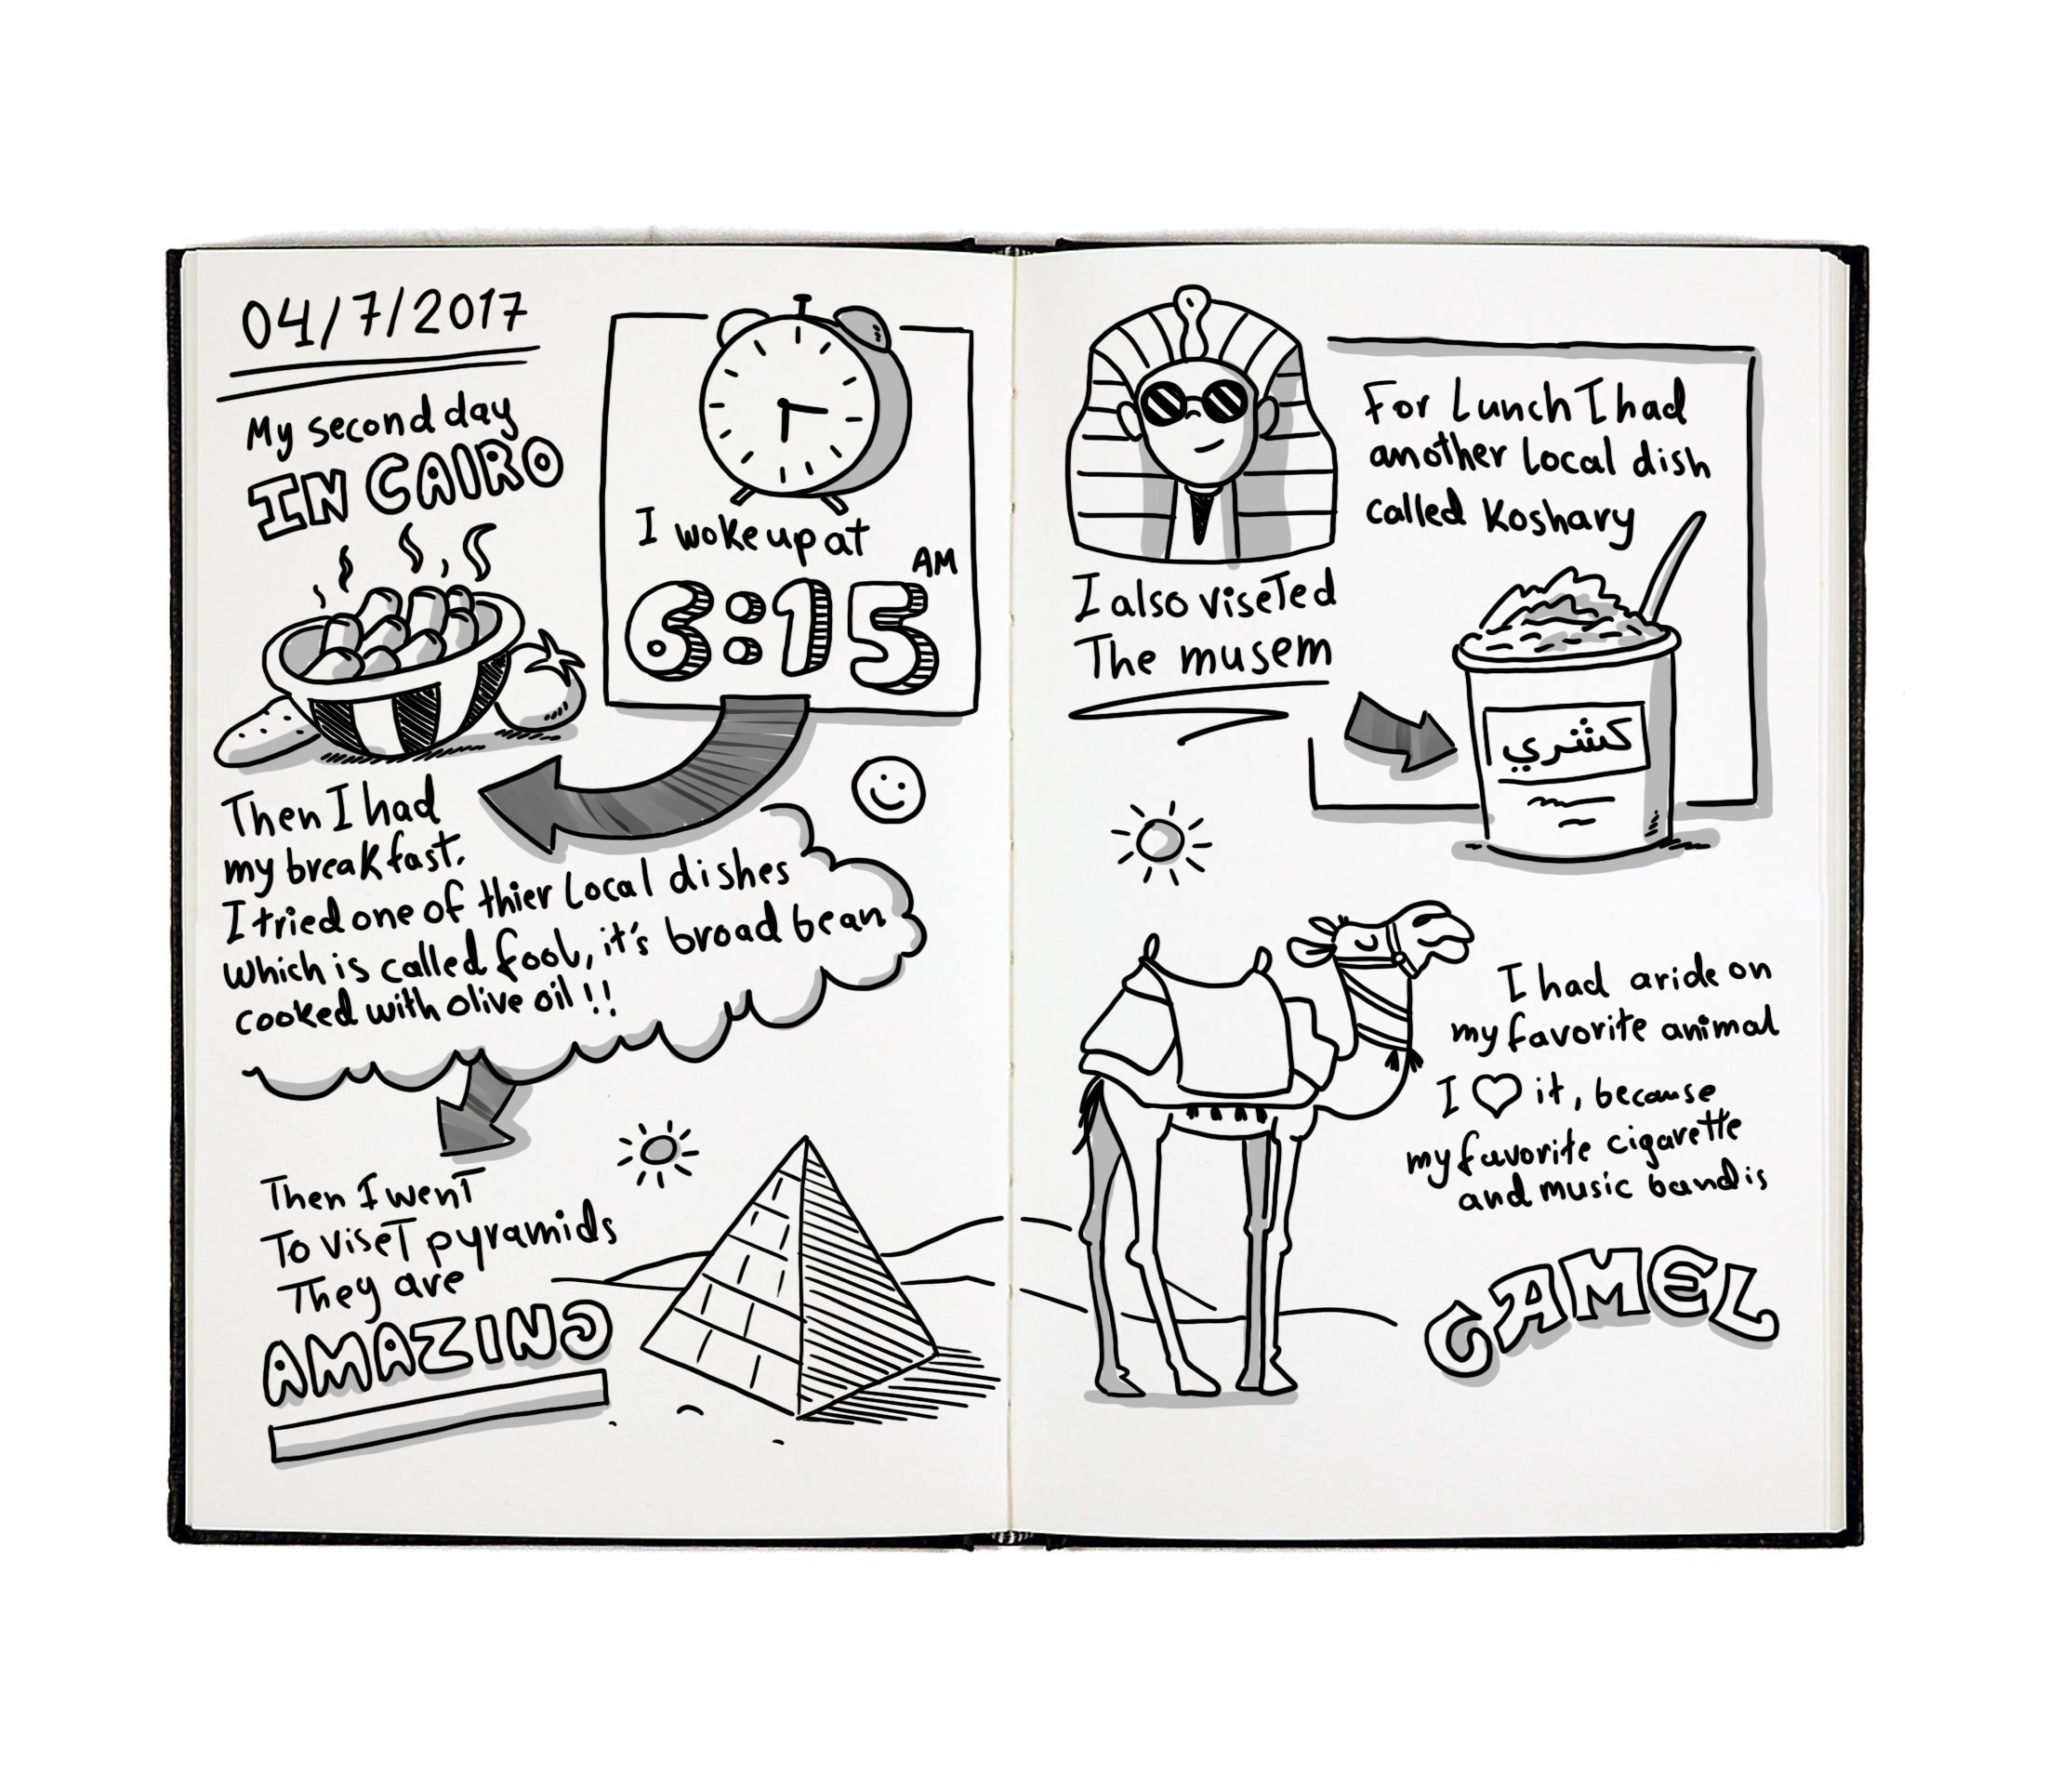 04/7/2017
My second day
IN CAIRO
I woke up at
6:15 AM
Then I had
my breakfast.
I tried one of thier local dishes
which is called fool, it's broad bean
cooked with olive oil !!
Then I went
To viseT pyramids
They are
AMAZING
I also viseTed
The musem
For Lunch I had
another local dish
called Koshary
كشري
I had a ride on
my favorite animal
I ♡ it, because
my favorite cigarette
and music band is
CAMEL